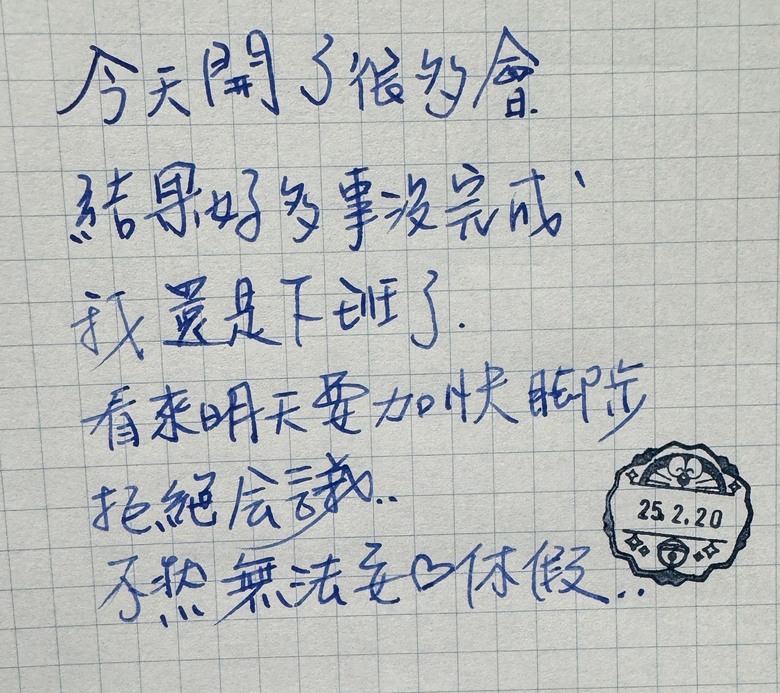 今天開了很多會
結果好多事沒完成、
我還是下班了.
看來明天要加快腳步
拒絕会議..
25.2.20
不然無法安♡休假..